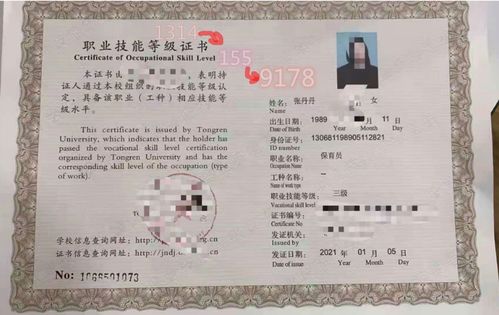 1314
职业技能等级证书
Certificate of Occupational Skill Level
155
9178
本证书由
，表明持
证人通过本校组织的
能等级认
定，具备该职业（工种）相应技能等
级水平。
This certificate is issued by Tongren
University, which indicates that the holder has
passed the vocational skill level certification
organized by Tongren University and has the
corresponding skill level of the occupation (type
of work).
学校信息查询网址：http://
.cn
证书信息查询网址：http://jndj.
No:
姓名：张丹丹
女
Name
出生日期：1989
年
月 11 日
Date of Birth Year Month Day
身份证号：130681198905112821
ID number
职业名称：保育员
Occupation Name
工种名称：--
Name of work type
职业技能等级：三级
Vocational skill level
证书编号：
Certificate No.
发证机关：
Issued by
发证日期：2021 年 01 月 05 日
Date of issue Year Month Day